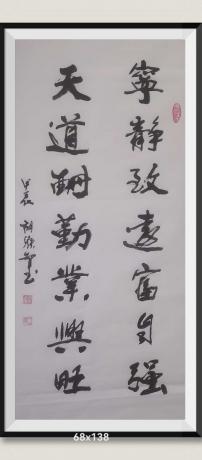 寧静致遠富自强
天道酬勤業興旺
甲辰
68x138